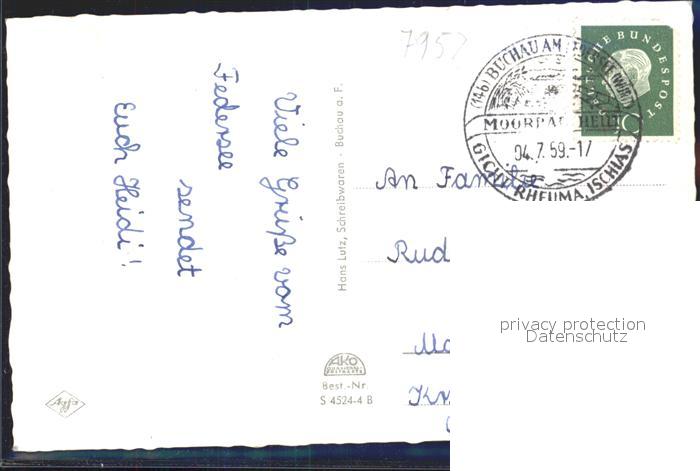 7957
(14b) BUCHAU AM FEDERSEE (WÜRTT)
MOORBAD HEILT
04.7.59.-17
GICHT, RHEUMA, ISCHIAS
DEUTSCHE BUNDESPOST
10
Viele Grüße vom
Federsee
sendet
Euch Heidi!
Hans Lutz, Schreibwaren · Buchau a. F.
An Familie
Rud
AKO
QUALITÄTS-
POSTKARTE
Best.-Nr.
S 4524-4 B
Agfa
privacy protection
Datenschutz